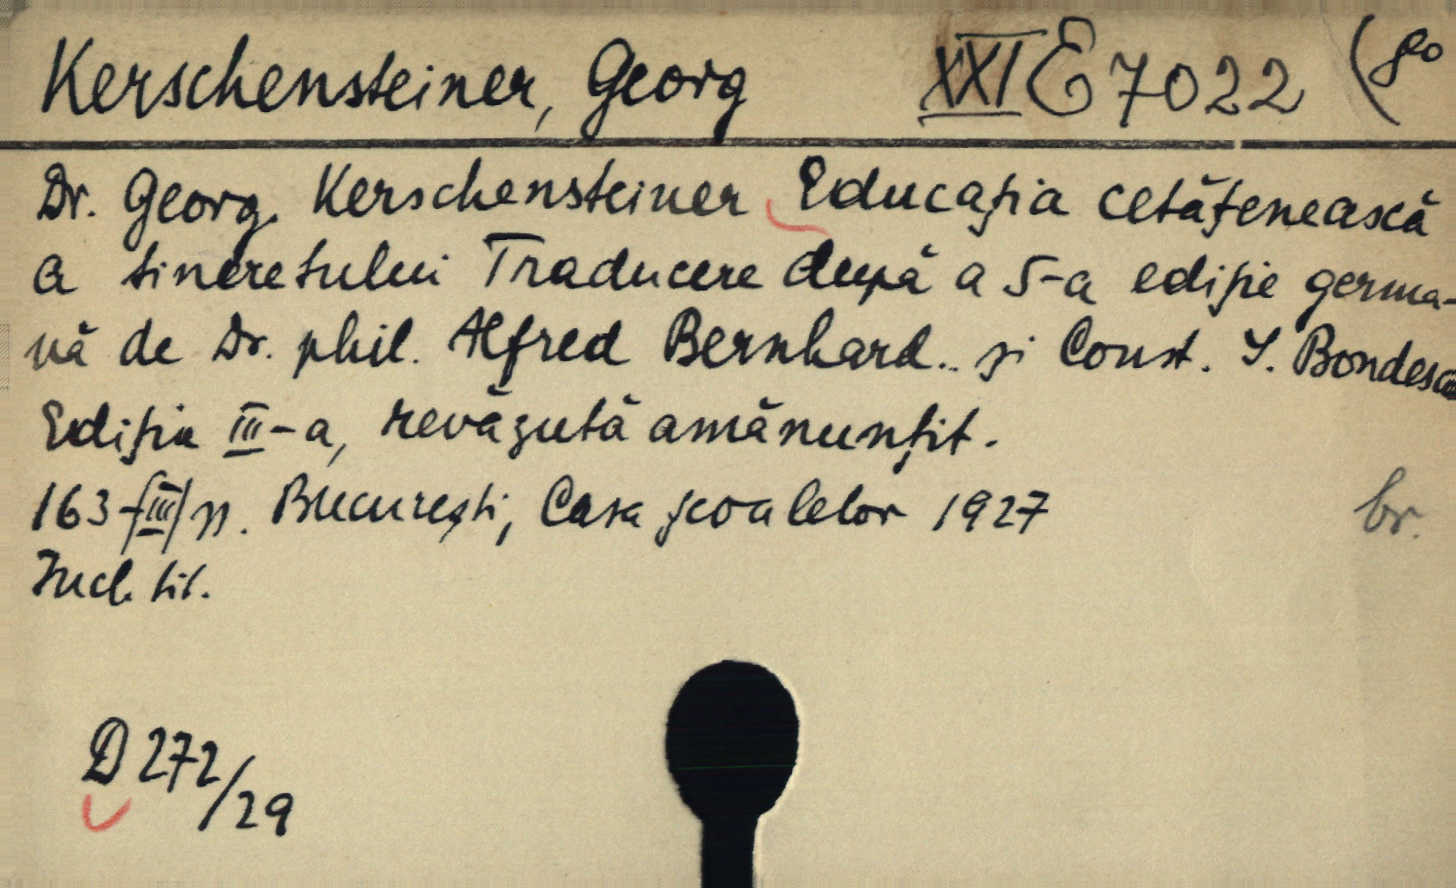 Kerschensteiner, Georg XXI E 7022
Dr. Georg Kerschensteiner Educația cetățenească
a tineretului Traducere după a 5-a ediție germa-
nă de Dr. phil. Alfred Bernhard.. și Const. I. Bondescu
Ediția III-a, revăzută amănunțit.
163+[III] p. București, Casa școalelor 1927 br.
D 272/29